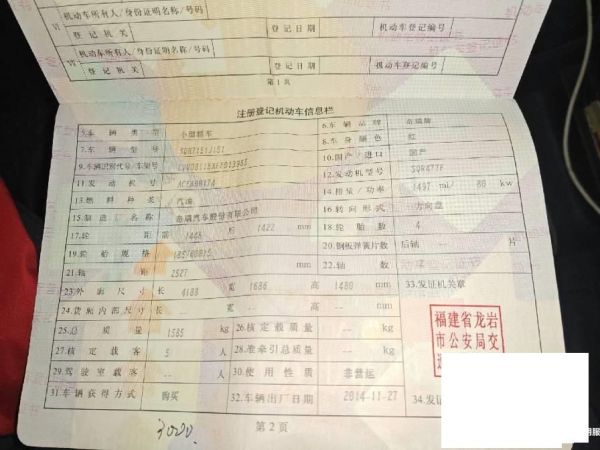 机动车所有人/身份证明名称/号码
VI 登记机关 登记日期 机动车登记编号
机动车所有人/身份证明名称/号码
VII 登记机关 登记日期 机动车登记编号
第1页
注册登记机动车信息栏
5.车辆类型 小型轿车 6.车辆品牌 奇瑞牌
7.车辆型号 8.车身颜色 红
9.车辆识别代号/车架号 10.国产/进口 国产
11.发动机号 12.发动机型号 SQR477F
13.燃料种类 汽油 14.排量/功率 1497 ml/ 80 kw
15.制造厂名称 奇瑞汽车股份有限公司 16.转向形式 方向盘
17.轮距 前 1448 后 1422 mm 18.轮胎数 4
19.轮胎规格 185/60R15 20.钢板弹簧片数 后轴 -- 片
21.轴距 2527 mm 22.轴数 2
23.外廓尺寸 长 4188 宽 1686 高 1480 mm 33.发证机关章
24.货厢内部尺寸 长 -- 宽 -- 高 -- mm
福建省龙岩
市公安局交
25.总质量 1585 kg 26.核定载质量 -- kg
27.核定载客 5 人 28.准牵引总质量 -- kg
29.驾驶室载客 -- 人 30.使用性质 非营运
31.车辆获得方式 购买 32.车辆出厂日期 2014-11-27 34.发证
第2页
3000